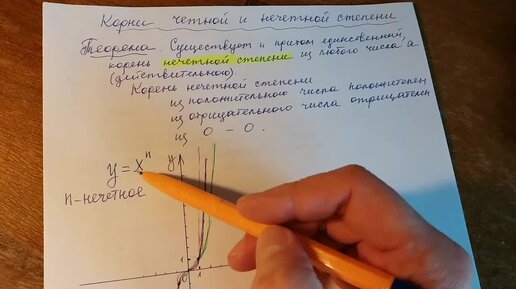 Корни четной и нечетной степени
Теорема. Существует и притом единственный,
корень нечетной степени из любого числа а
(действительного)
Корень нечетной степени
из положительного числа положителен
из отрицательного числа отрицателен
из 0 – 0.
y = xⁿ
n-нечетное
y
1
0 1